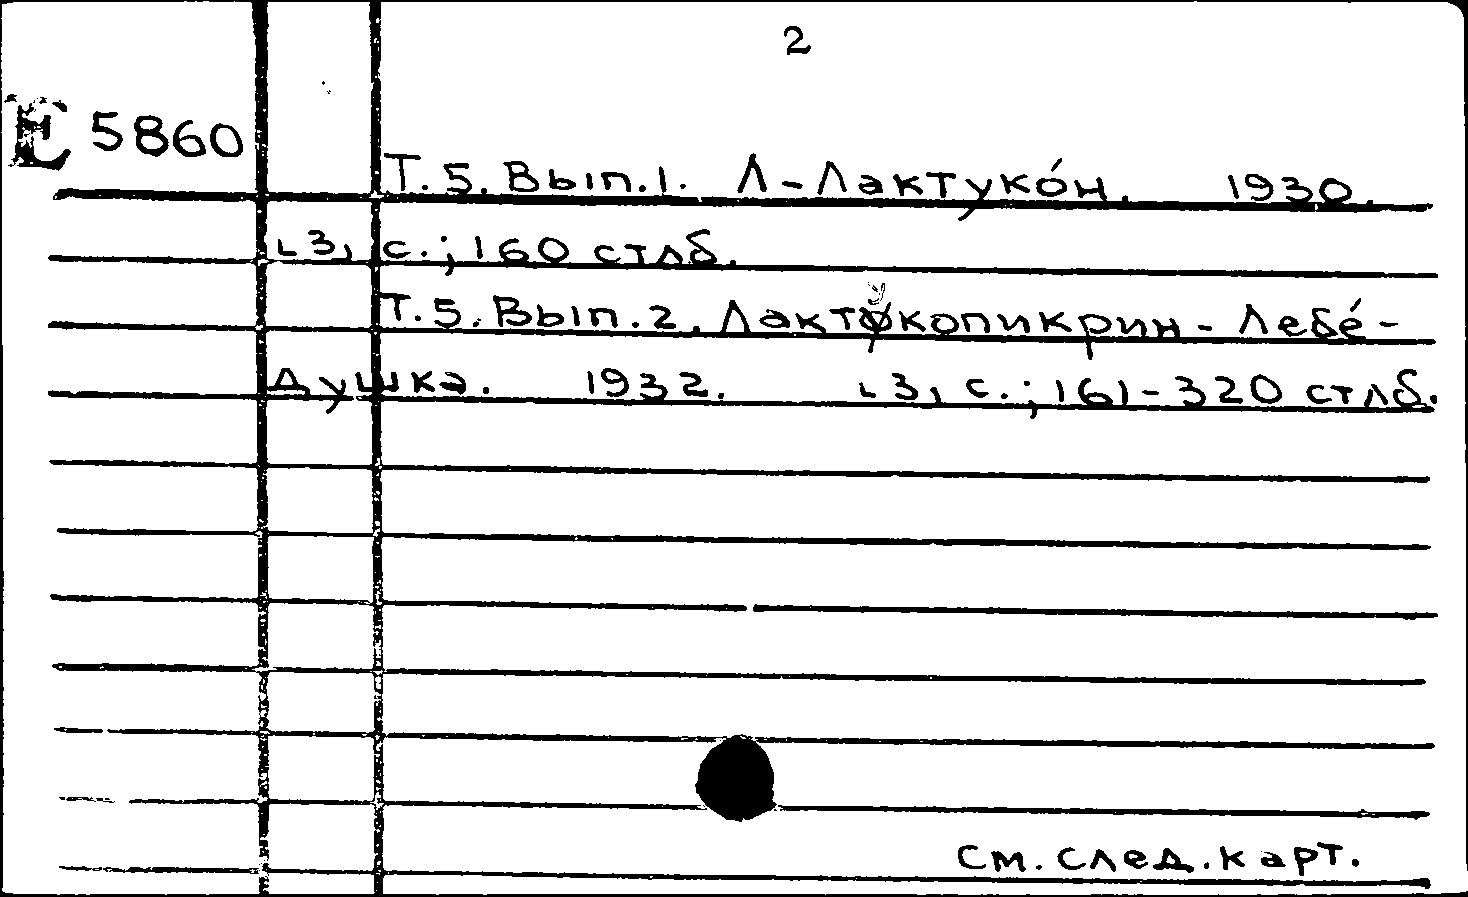 2
E 5860
Т. 5. Вып. 1. Л - Лактуко́н. 1930.
[3] с.; 160 стлб.
Т. 5. Вып. 2. Лактукопикрин - Лебе́-
душка. 1932. [3] с.; 161-320 стлб.
См. след. карт.